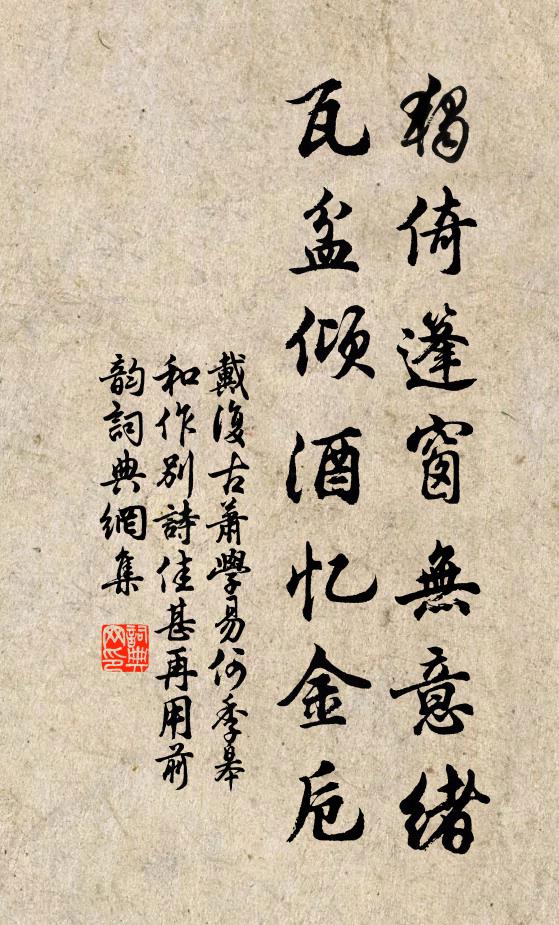 獨倚蓬窗無意緒
瓦盆傾酒忆金卮
戴復古蕭學易何季皋
和作別詩佳甚再用前
韵詞典網集
詞典
网印